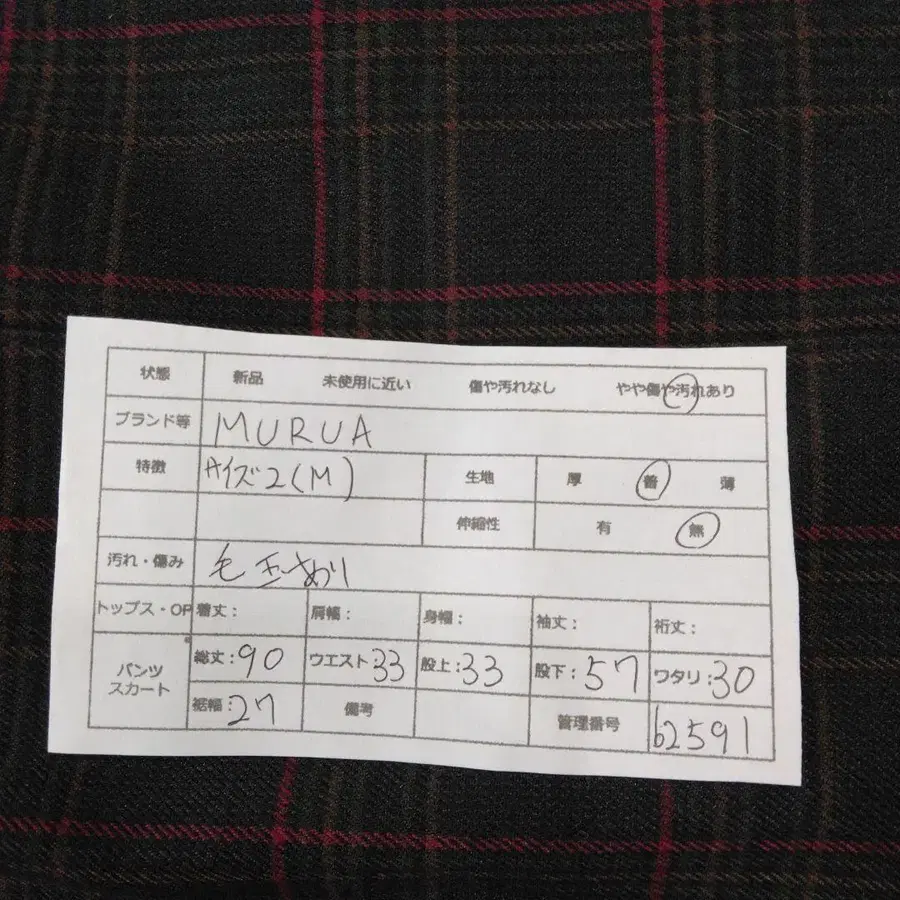 状態 新品 未使用に近い 傷や汚れなし やや傷や汚れあり
ブランド等 MURUA
特徴 サイズ2(M) 生地 厚 普 薄
伸縮性 有 無
汚れ・傷み 毛玉あり
トップス・OP 着丈: 肩幅: 身幅: 袖丈: 裄丈:
パンツ スカート 総丈:90 ウエスト33 股上:33 股下:57 ワタリ:30
裾幅:27 備考 管理番号 62591